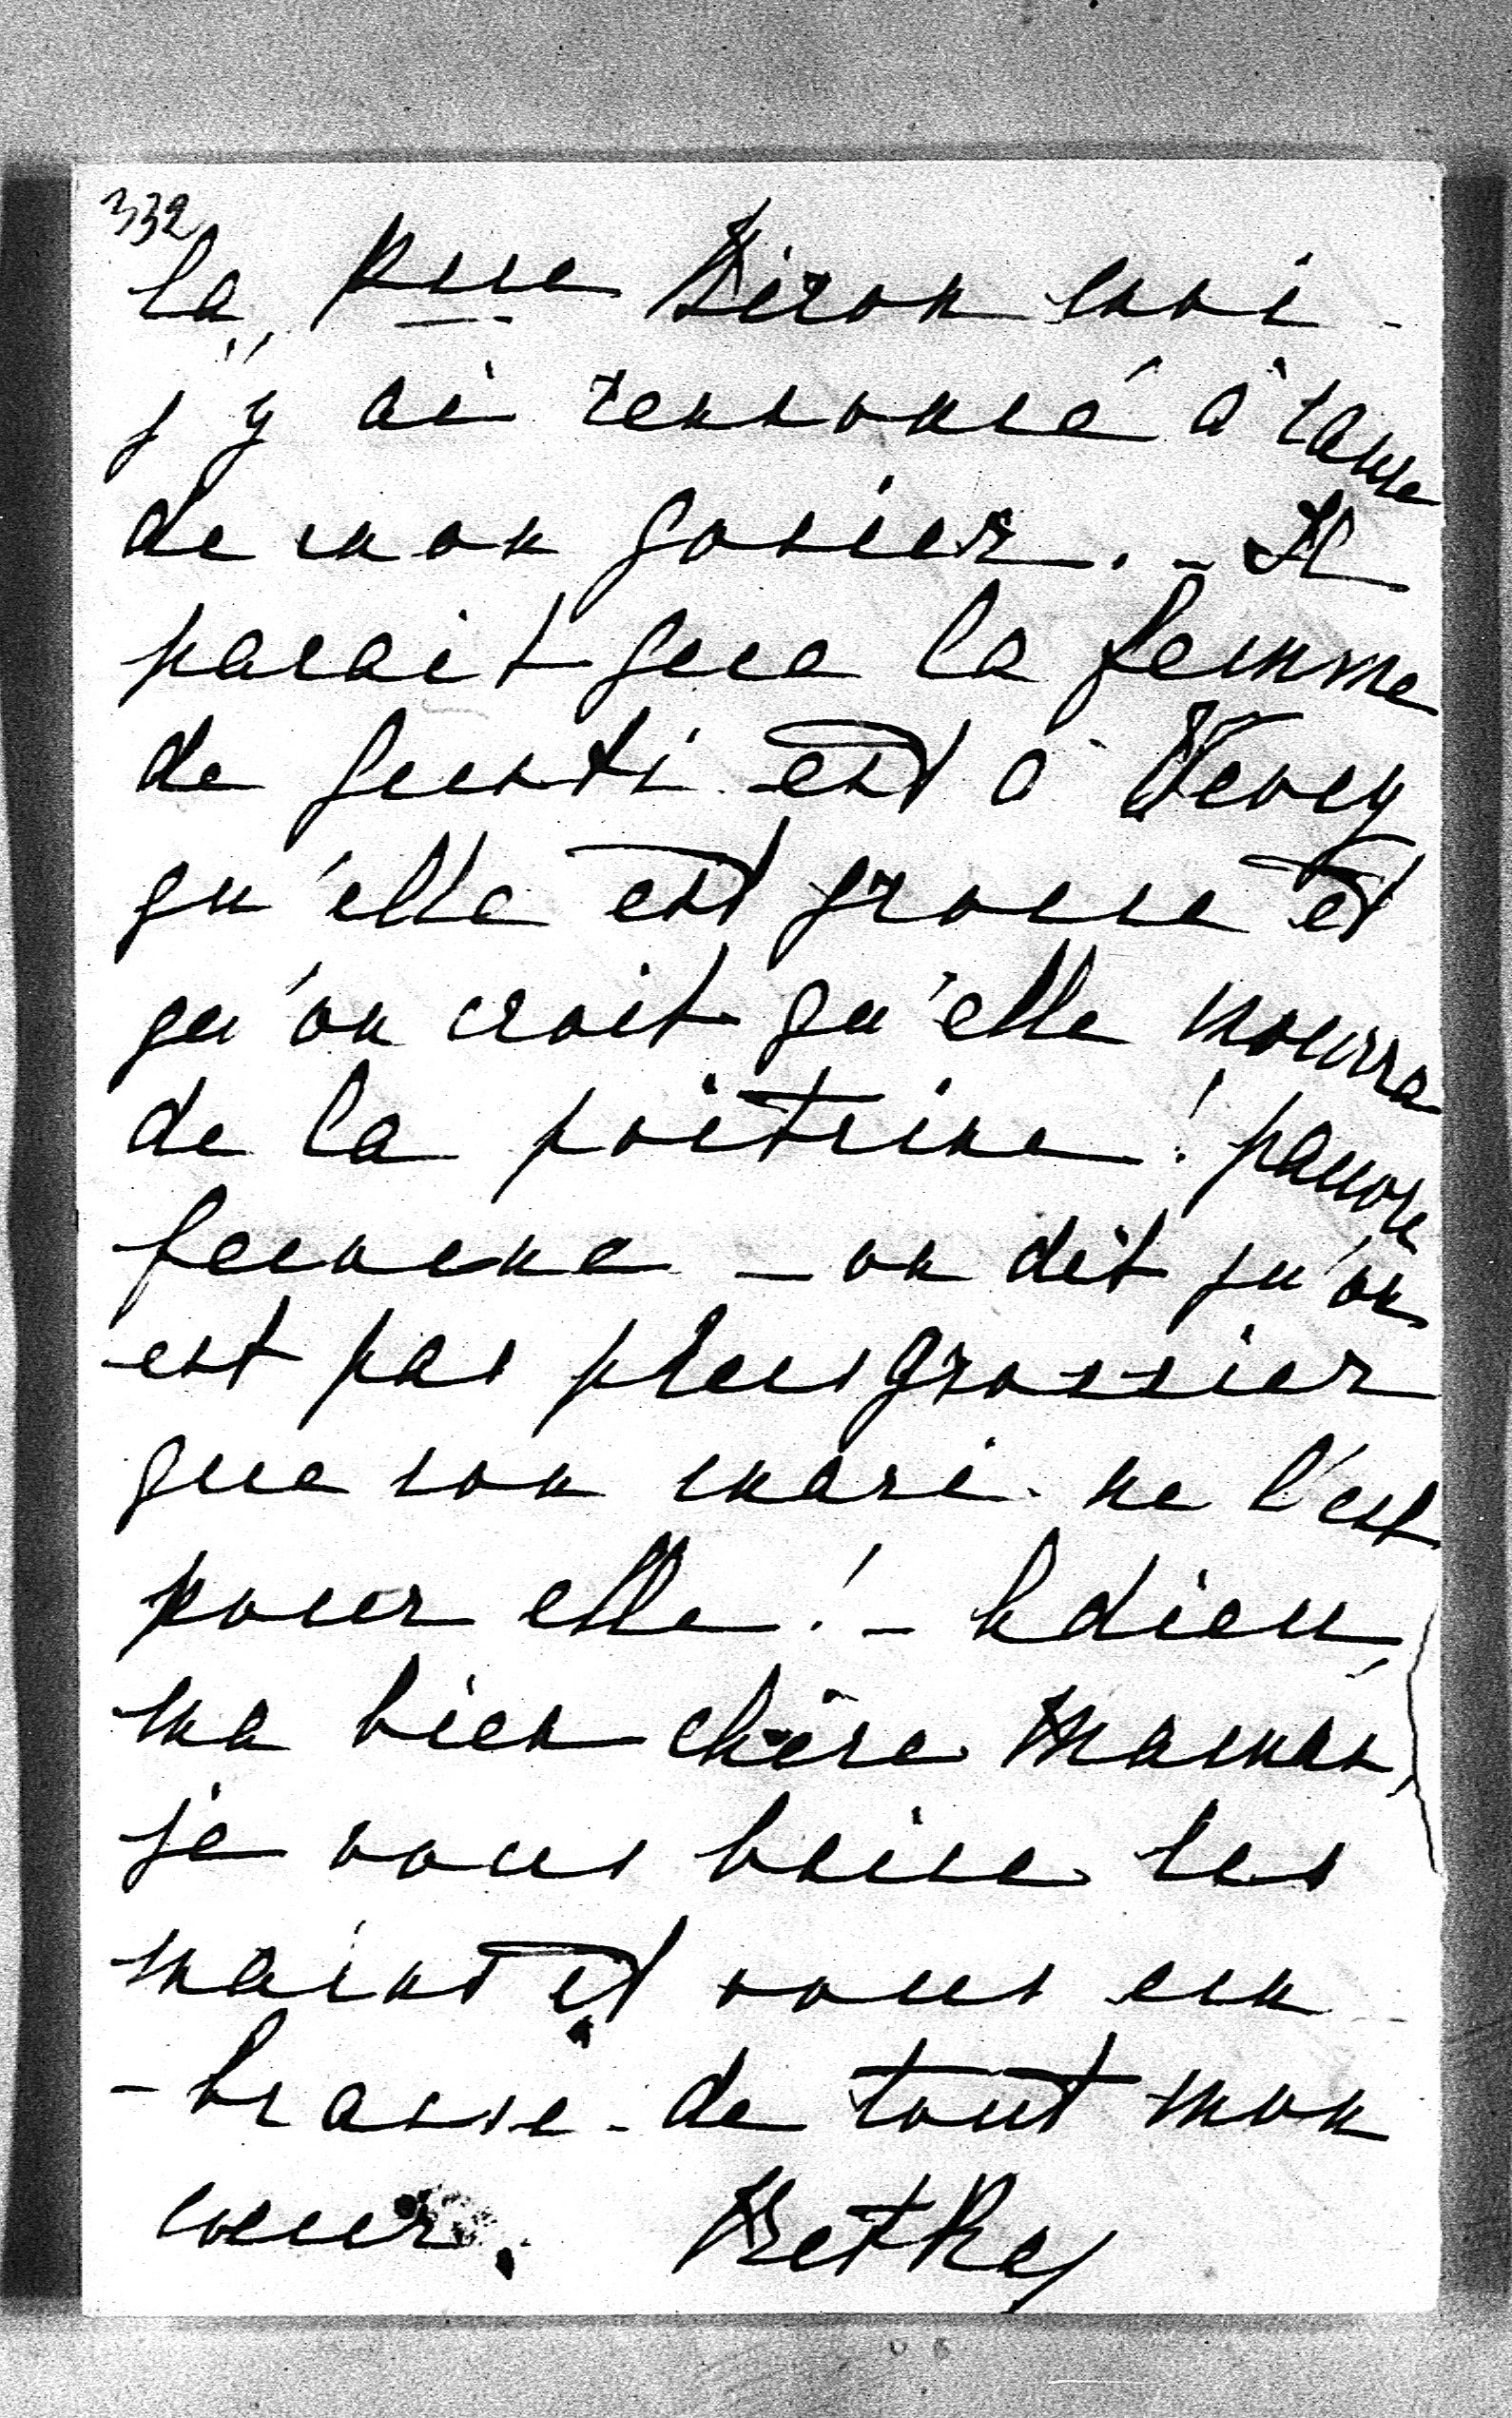 332
la Psse Biron moi
j'y ai renoncé à cause
de mon gosier. - Il
parait que la femme
de Gusti est à Vevey
qu'elle est grosse et
qu'on croit qu'elle mourra
de la poitrine! pauvre
femme - on dit qu'on
est pas plus grossier
que son mari ne l'est
pour elle! - Adieu,
ma bien chère Maman,
je vous baise les
mains et vous em
-brasse de tout mon
coeur.